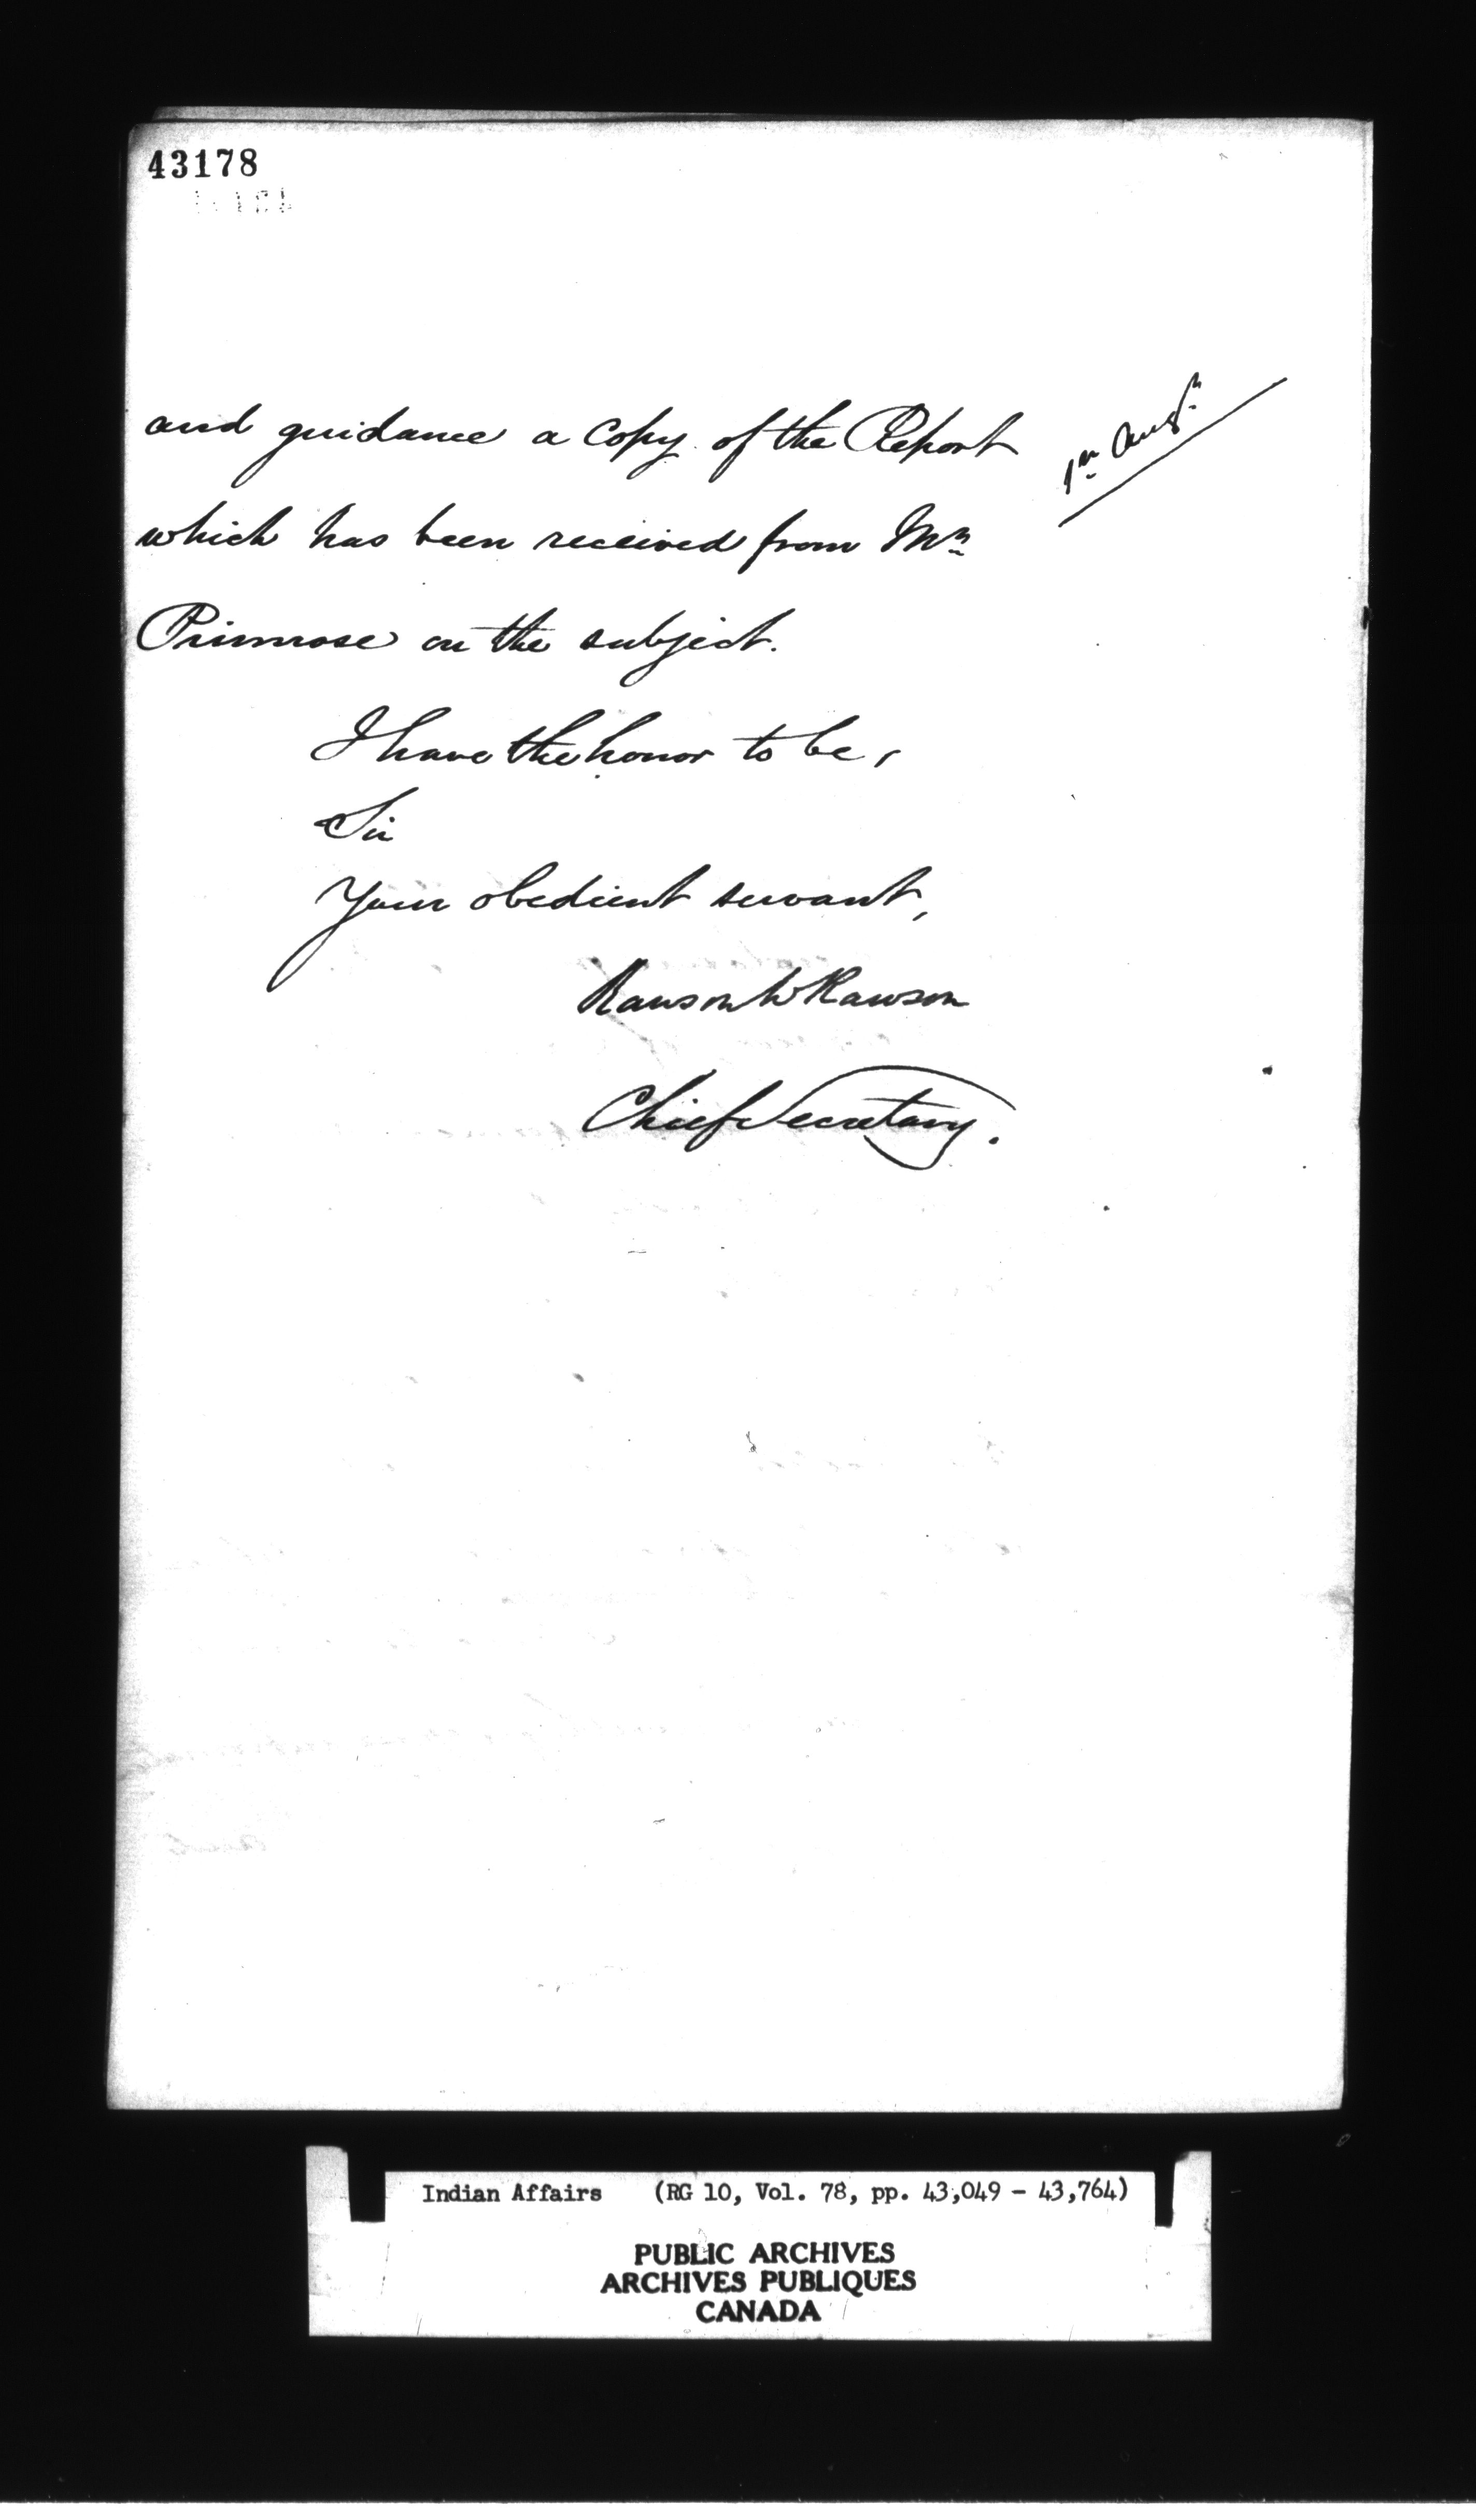 43178
and guidance a Copy of the Report
1st Augt
which has been received from Mr
Primrose on the subject.
I have the honor to be,
Sir
Your obedient servant,
Rawson W Rawson
Chief Secretary.
Indian Affairs (RG 10, Vol. 78, pp. 43,049 - 43,764)
PUBLIC ARCHIVES
ARCHIVES PUBLIQUES
CANADA